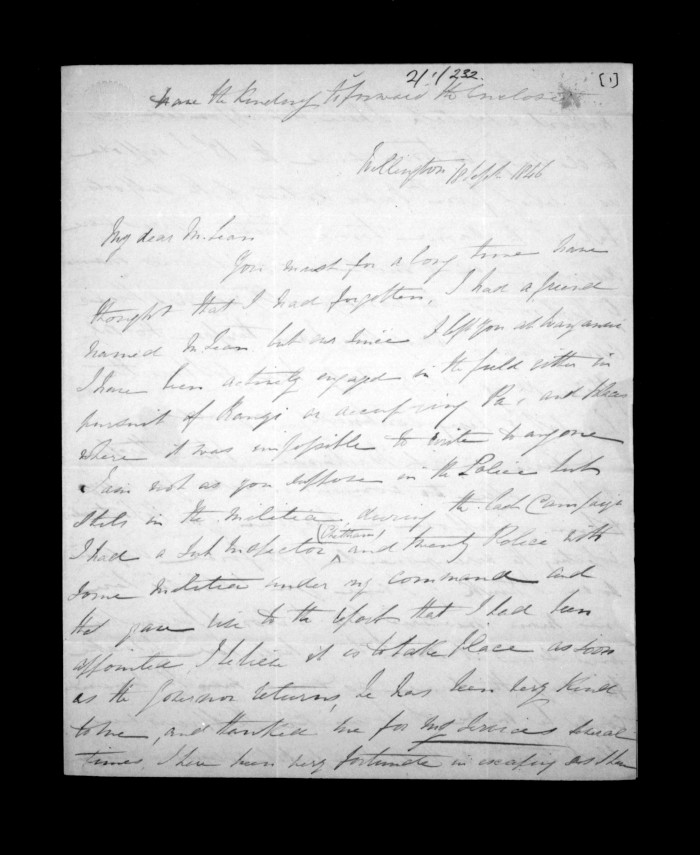 21/232. [1]
have the kindness to forward the Enclosed
Wellington 10 Sept 1846
My dear McLean
You must for a long time have
thought that I had forgotten, I had a friend
named McLean but as since I left you at
I have been actively engaged in the field either in
pursuit of Rangi or occupying Pa's and places
where it was impossible to write to anyone
I am not as you suppose in the Police but
still in the Militia, during the last Campaign
I had a Sub Inspector (Chetham) and twenty Police with
some Militia under my command and
that gave rise to the report that I had been
appointed, I believe it is to take place as soon
as the Governor returns, he has been very kind
to me, and thanked me for my services several
times, I have been very fortunate in escaping as